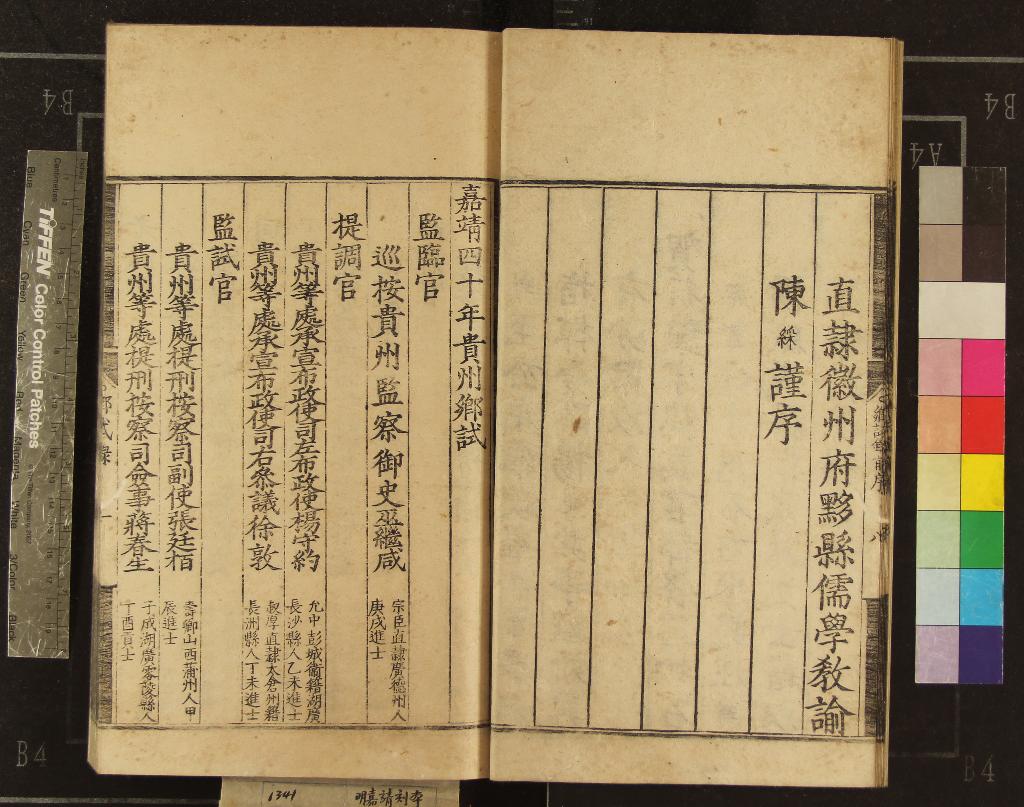 直隸徽州府黟縣儒學敎諭
陳綵謹序
嘉靖四十年貴州鄉試
監臨官
巡按貴州監察御史巫繼咸
宗臣直隸廣德州人
庚戌進士
提調官
貴州等處承宣布政使司左布政使楊守約
允中彭城衞籍湖廣
長沙縣人乙未進士
貴州等處承宣布政使司右叅議徐敦
叔厚直隸太倉州籍
長洲縣人丁未進士
監試官
貴州等處提刑按察司副使張廷栢
壽卿山西蒲州人甲
辰進士
貴州等處提刑按察司僉事蔣春生
子成湖廣零陵縣人
丁酉貢士
TIFFEN Color Control Patches
Blue
Cyan
Green
Yellow
Red
Magenta
White
3/Color
Black
Centimetres
B4
B4
A4
B4
B4
1341
明嘉靖刻本